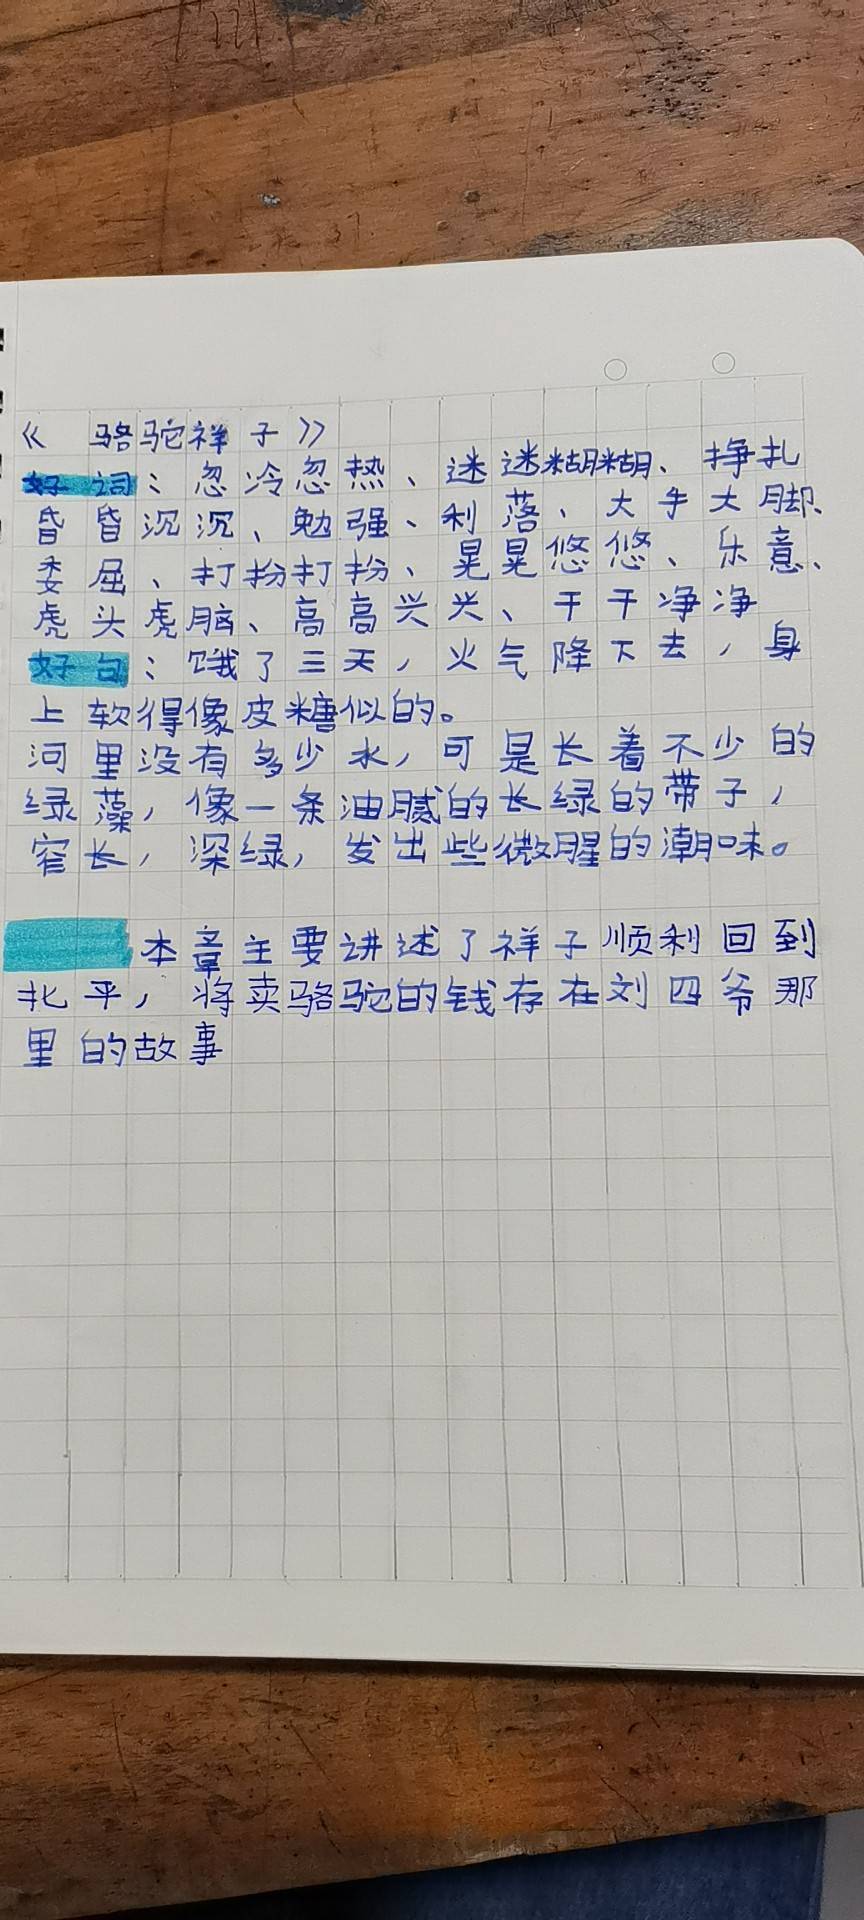 《 骆驼祥子》
好词：忽冷忽热、迷迷糊糊、挣扎
昏昏沉沉、勉强、利落、大手大脚、
委屈、打扮打扮、晃晃悠悠、乐意、
虎头虎脑、高高兴兴、干干净净
好句：饿了三天，火气降下去，身
上软得像皮糖似的。
河里没有多少水，可是长着不少的
绿藻，像一条油腻的长绿的带子，
窄长，深绿，发出些微腥的潮味。
本章主要讲述了祥子顺利回到
北平，将卖骆驼的钱存在刘四爷那
里的故事